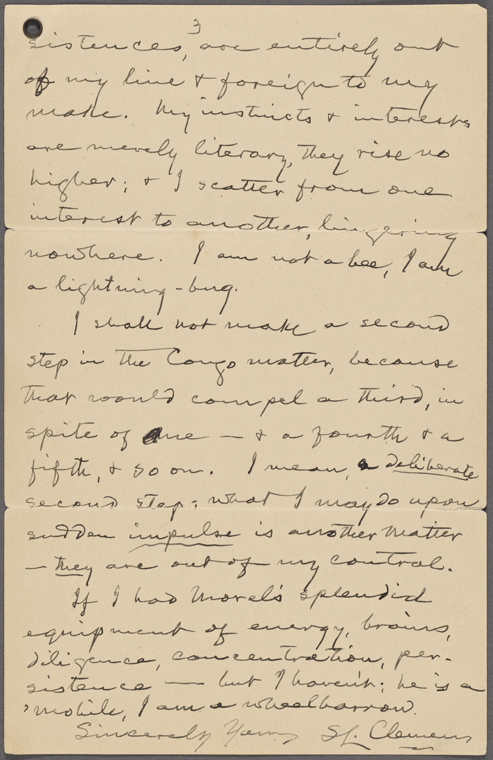 3
sistences, are entirely out
of my line & foreign to my
make. My instincts & interests
are merely literary, they rise no
higher; & I scatter from one
interest to another, lingering
nowhere. I am not a bee, I am
a lightning-bug.
I shall not make a second
step in the Congo matter, because
that would compel a third, in
spite of me — & a fourth & a
fifth, & so on. I mean a deliberate
second step; what I may do upon
sudden impulse is another matter
— they are out of my control.
If I had Morel's splendid
equipment of energy, brains,
diligence, concentration, per-
sistence — but I haven't; he is a
'mobile, I am a wheelbarrow.
Sincerely Yours SL. Clemens